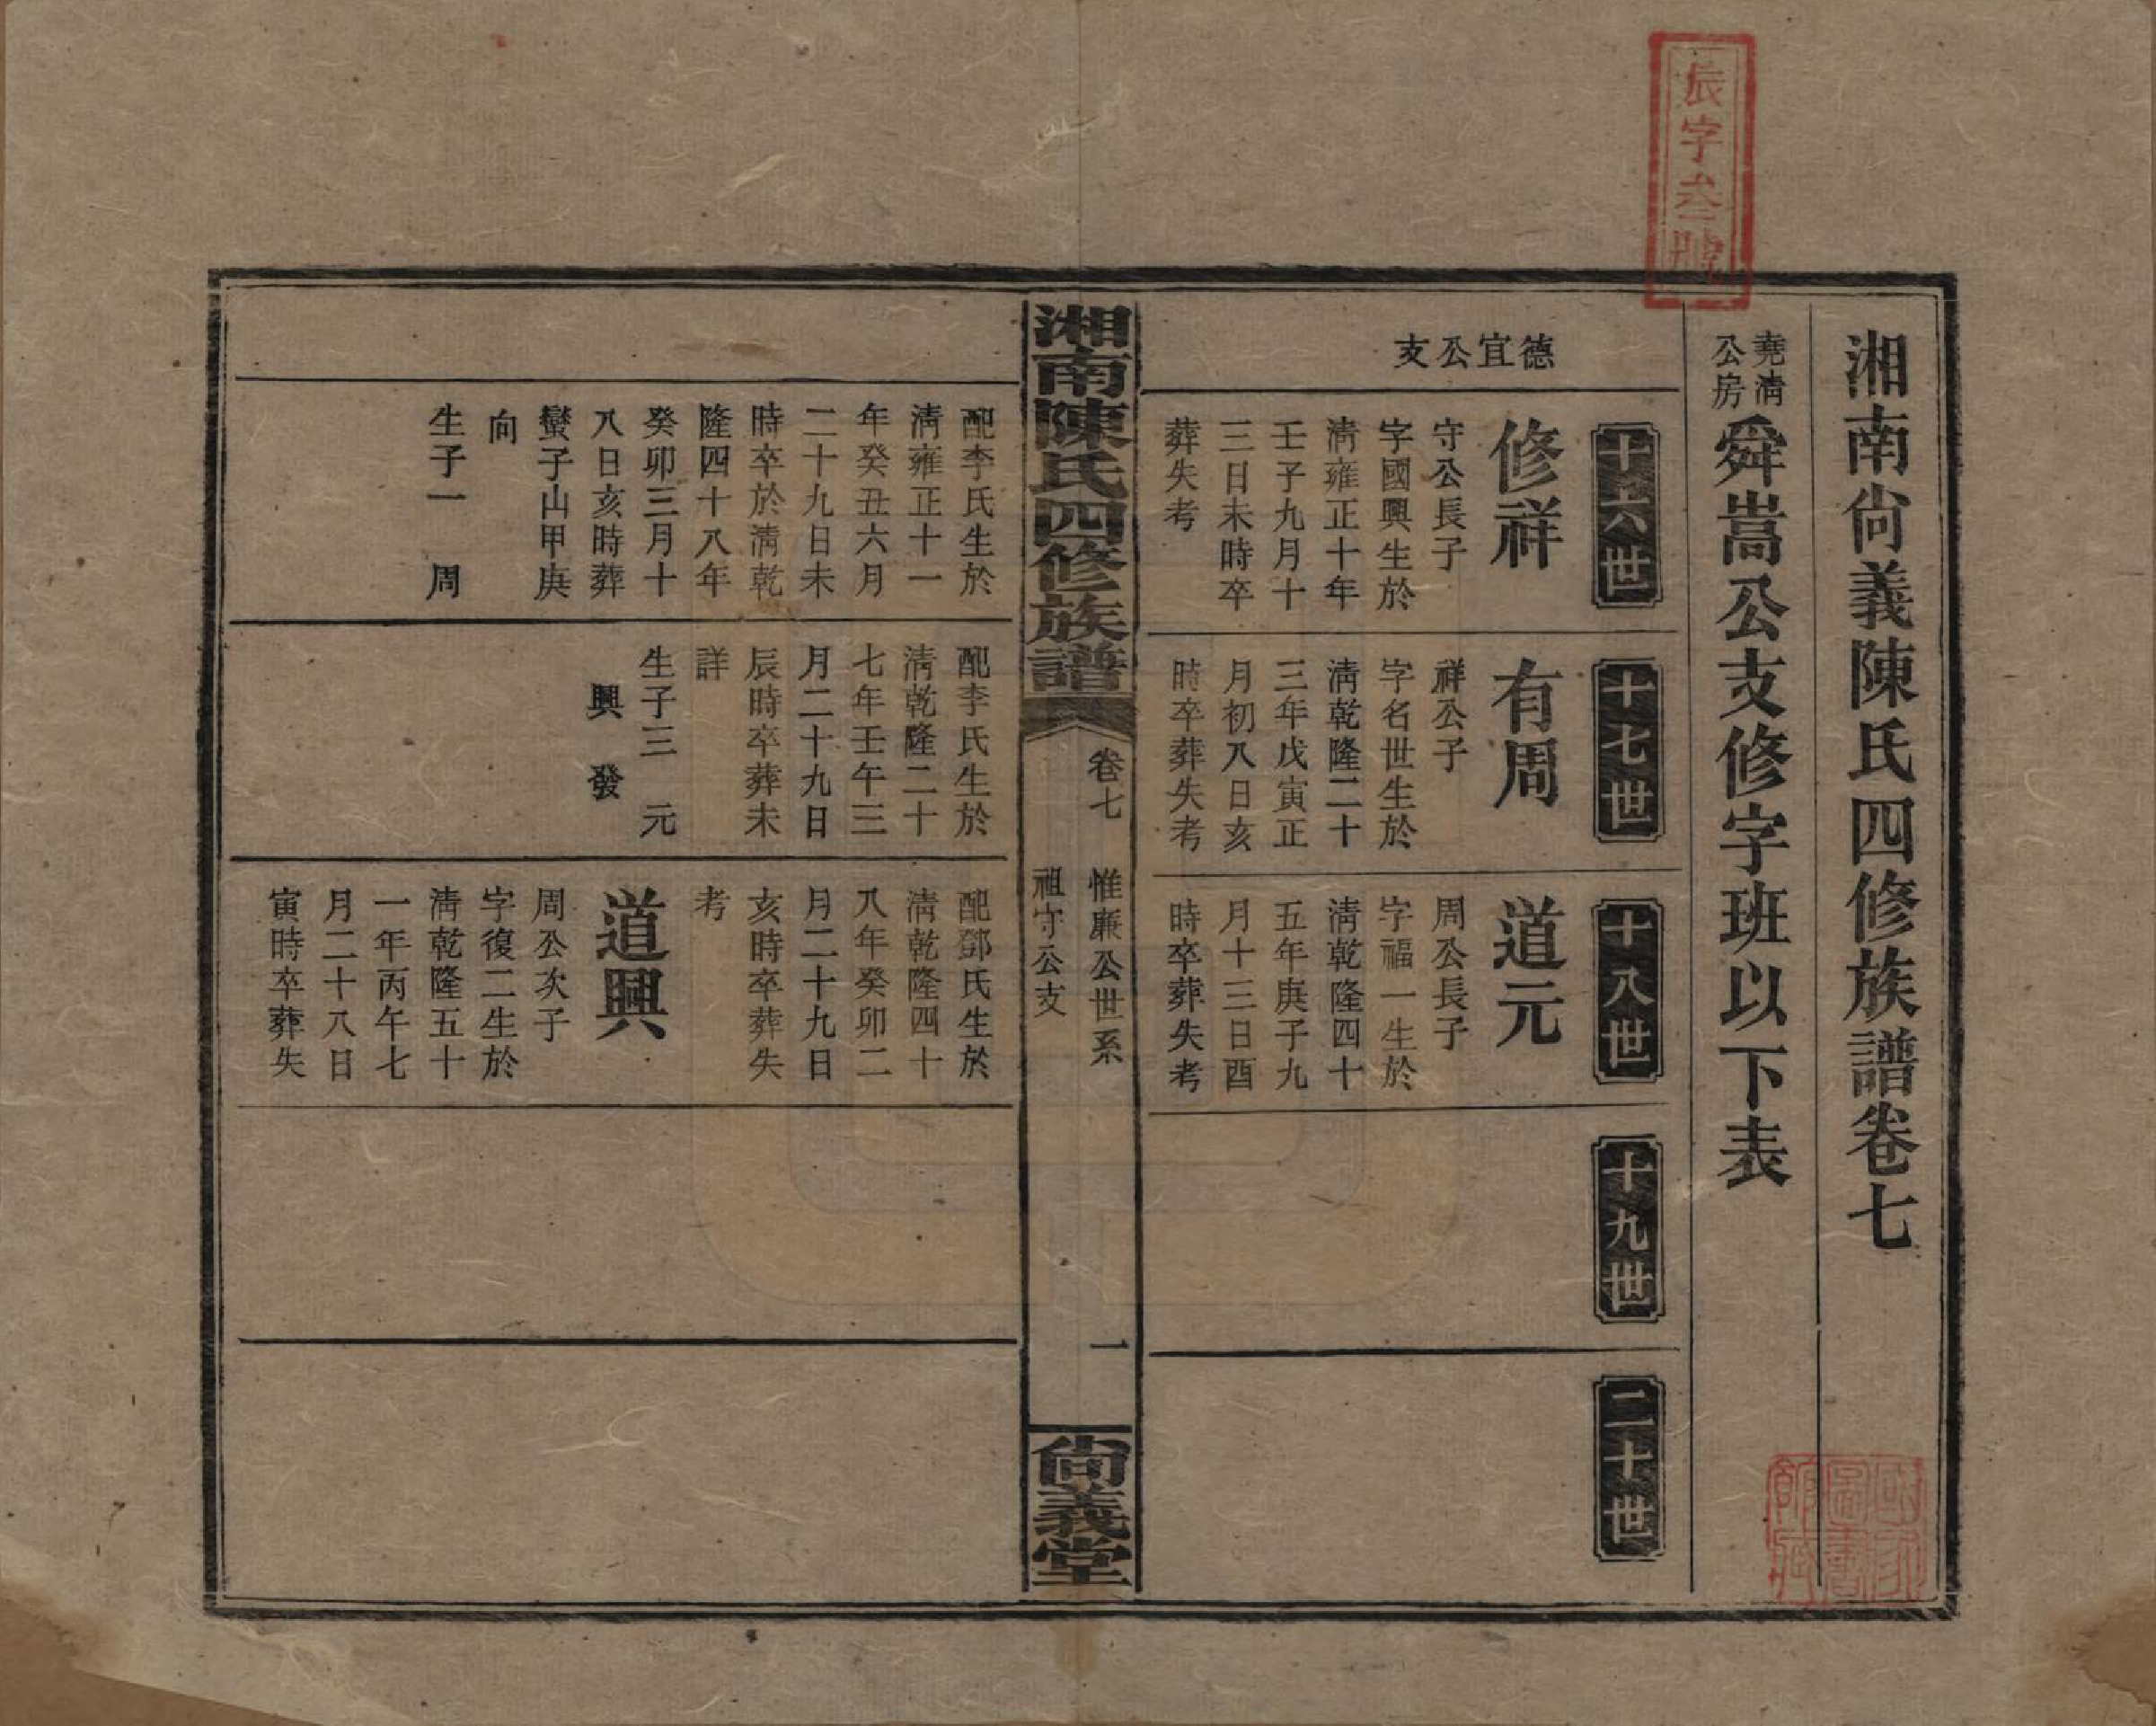 辰字叁號
湘南尙義陳氏四修族譜卷七
堯淸
公房
舜嵩公支修字班以下表
德宜公支
十六世
修祥
守公長子
字國興生於
淸雍正十年
壬子九月十
三日未時卒
葬失考
十七世
有周
祥公子
字名世生於
淸乾隆二十
三年戊寅正
月初八日亥
時卒葬失考
十八世
道元
周公長子
字福一生於
淸乾隆四十
五年庚子九
月十三日酉
時卒葬失考
十九世
二十世
湘南陳氏四修族譜
卷七
惟廉公世系
祖守公支
一
尙義堂
配李氏生於
淸雍正十一
年癸丑六月
二十九日未
時卒於淸乾
隆四十八年
癸卯三月十
八日亥時葬
蠻子山甲庚
向
生子一 周
配李氏生於
淸乾隆二十
七年壬午三
月二十九日
辰時卒葬未
詳
生子三 元
興 發
配鄧氏生於
淸乾隆四十
八年癸卯二
月二十九日
亥時卒葬失
考
道興
周公次子
字復二生於
淸乾隆五十
一年丙午七
月二十八日
寅時卒葬失
國家圖書館藏